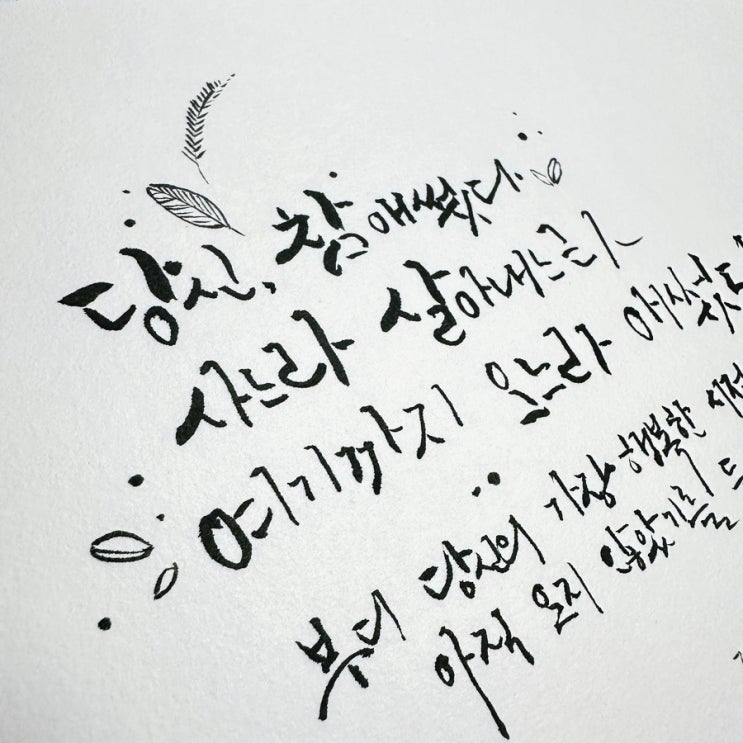 당신, 참 애썼다.
사느라 살아내느라
여기까지 오느라 애썼다
부디 당신의 가장 행복한 시절
아직 오지 않았기를